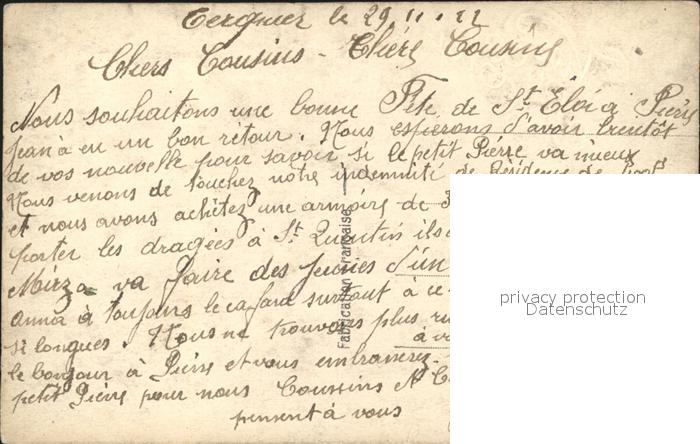 Tergnier le 29.11.22
Chers Cousins - Chéres Cousins
Nous souhaitons une bonne Fête de St Éloi à Pierre
Jean à eu un bon retour. Nous espierons d'avoir bientôt
de vos nouvelle pour savoir si le petit Pierre va mieux
Nous venons de toucher notre indemnité de Résidence de
et nous avons achêtez une armoire de
porter les dragées à St Quentin ils
Mirza va faire des jeunes d'un
Anna à toujours le cafard surtout à ce
si longues. Nous ne trouvons plus
à
le bonjour à Pierre et vous embrasserez
petit Pierre pour nous Coussins
pensent à vous
Fabrication Française
privacy protection
Datenschutz